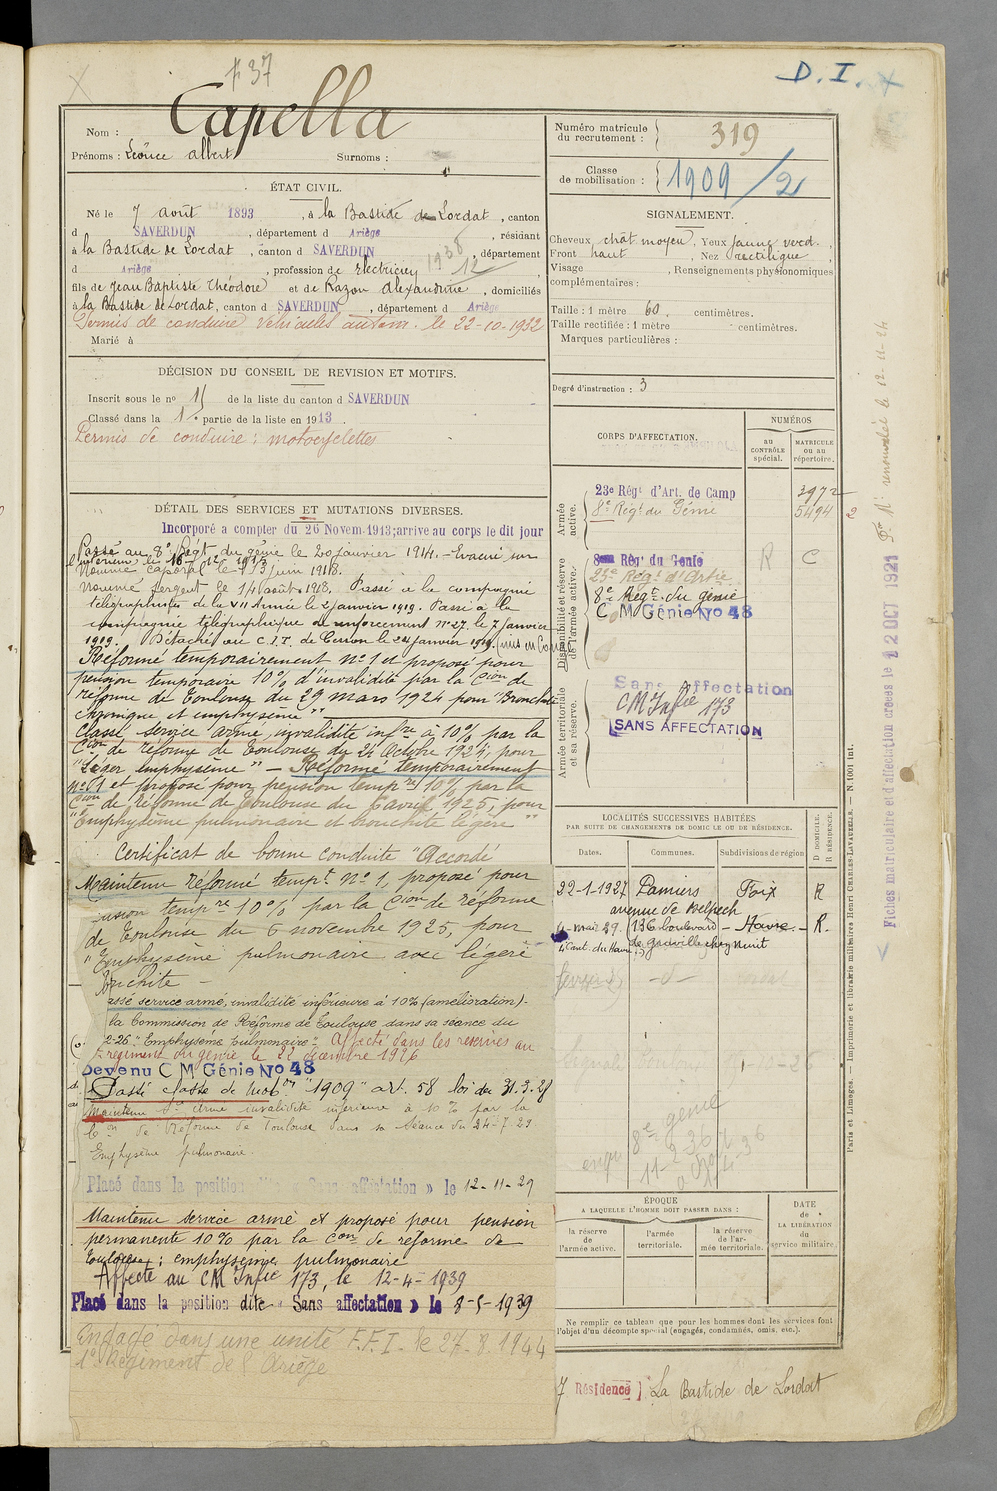 F 37
D. I.
Capella
Nom :
Prénoms : Léonce albert Surnoms :
ÉTAT CIVIL.
Né le 7 août 1893, à la Bastide de Lordat, canton
d SAVERDUN, département d Ariège, résidant
à la Bastide de Lordat, canton d SAVERDUN, département
d Ariège, profession de Electricien 1938 12
fils de Jean Baptiste Théodore et de Razou Alexandrine, domiciliés
à la Bastide de Lordat, canton d SAVERDUN, département d Ariège
Permis de conduire véhicules autom. le 22-10-1932
Marié à
DÉCISION DU CONSEIL DE REVISION ET MOTIFS.
Inscrit sous le no 15 de la liste du canton d SAVERDUN
Classé dans la 1e partie de la liste en 1913.
Permis de conduire : motocyclettes
DÉTAIL DES SERVICES ET MUTATIONS DIVERSES.
Incorporé a compter du 26 Novem. 1913; arrive au corps le dit jour
Passé au 8e Régt du génie le 20 janvier 1914. – Evacué sur
l'intérieur le 16-12-1915
Nommé caporal le juin 1918.
Nommé sergent le 14 août 1918. Passé à la compagnie
télégraphistes de la VII Armée le 2 janvier 1919. Passé à la
compagnie télégraphique de renforcement n° 27 le 7 janvier
1919. Détaché au C.I.T. de le 24 janvier 1919.
Réformé temporairement no 1 et proposé pour
pension temporaire 10% d'invalidité par la Cion de
réforme de Toulouse du 29 mars 1924 pour "Bronchite
chronique et emphysème"
Classé service armé, invalidité infre à 10% par la
Cion de réforme de Toulouse du 24 Octobre 1924, pour
"Léger emphysème" – Réformé temporairement
no 1 et proposé pour pension tempre 10% par la
Cion de réforme de Toulouse du 6 avril 1925, pour
"Emphysème pulmonaire et bronchite légère"
Certificat de bonne conduite "Accordé"
Maintenu réformé tempt no 1, proposé pour
pension tempre 10% par la Cion de réforme
de Toulouse du 6 novembre 1925, pour
"Emphysème pulmonaire avec légère
bronchite –
assé service armé, invalidité inférieure à 10% (amélioration) -
la Commission de Réforme de Toulouse dans sa séance du
2-26 "Emphysème pulmonaire". Affecté dans les réserves au
régiment du génie le 22 décembre 1926
Devenu C M Génie No 48
Passé classe de Mobon "1909" art. 58 loi du 31.3.28
Maintenu Sce Armé invalidité inférieure à 10% par la
Con de Réforme de Toulouse dans sa séance du 24-7-29
Emphysème pulmonaire.
Placé dans la position dite « Sans affectation » le 12-11-29
Maintenu service armé et proposé pour pension
permanente 10% par la Con de réforme de
Toulouse ; emphysème pulmonaire
Affecté au CM Infie 173, le 12-4-1939
Placé dans la position dite « Sans affectation » le 8-5-1939
Engagé dans une unité F.F.I. le 27.8.1944
1er Régiment de l'Ariège
Numéro matricule
du recrutement : 319
Classe
de mobilisation : 1909/2
SIGNALEMENT.
Cheveux chât moyen, Yeux jaune verd.,
Front haut, Nez rectiligne,
Visage , Renseignements physionomiques
complémentaires :
Taille : 1 mètre 60. centimètres.
Taille rectifiée : 1 mètre centimètres.
Marques particulières :
Degré d'instruction : 3
CORPS D'AFFECTATION.
NUMÉROS
AU CONTRÔLE spécial.
MATRICULE OU AU répertoire.
Armée active.
23e Régt d'Art. de Camp 3972
8e Régt du Génie 5494 2
Disponibilité et réserve de l'armée active.
8e Rég. du Génie R C
23e Régt d'Artie
8e Régt du génie
C M Génie No 48
Armée territoriale et sa réserve.
Sans affectation
CM Infie 173
SANS AFFECTATION
LOCALITÉS SUCCESSIVES HABITÉES
PAR SUITE DE CHANGEMENTS DE DOMICILE OU DE RÉSIDENCE.
Dates. Communes. Subdivisions de région D DOMICILE. R RÉSIDENCE.
22-1-1927 Pamiers Foix R
avenue de Belpech
4-mai 29. (136 boulevard – Havre – R.
4e Cant. du Havre de graville chez nuit
8e génie
11-2-36
ÉPOQUE
A LAQUELLE L'HOMME DOIT PASSER DANS :
la réserve de l'armée active.
l'armée territoriale.
la réserve de l'armée territoriale.
DATE de LA LIBÉRATION du service militaire.
Ne remplir ce tableau que pour les hommes dont les services font
l'objet d'un décompte spécial (engagés, condamnés, omis, etc.).
7 Résidence } La Bastide de Lordat
Paris et Limoges. — Imprimerie et librairie militaires Henri CHARLES-LAVAUZELLE. — N. 1001 int.
Fiches matriculaire et d'affectation créées le 12 OCT 1921
renouvelée le 12-11-24